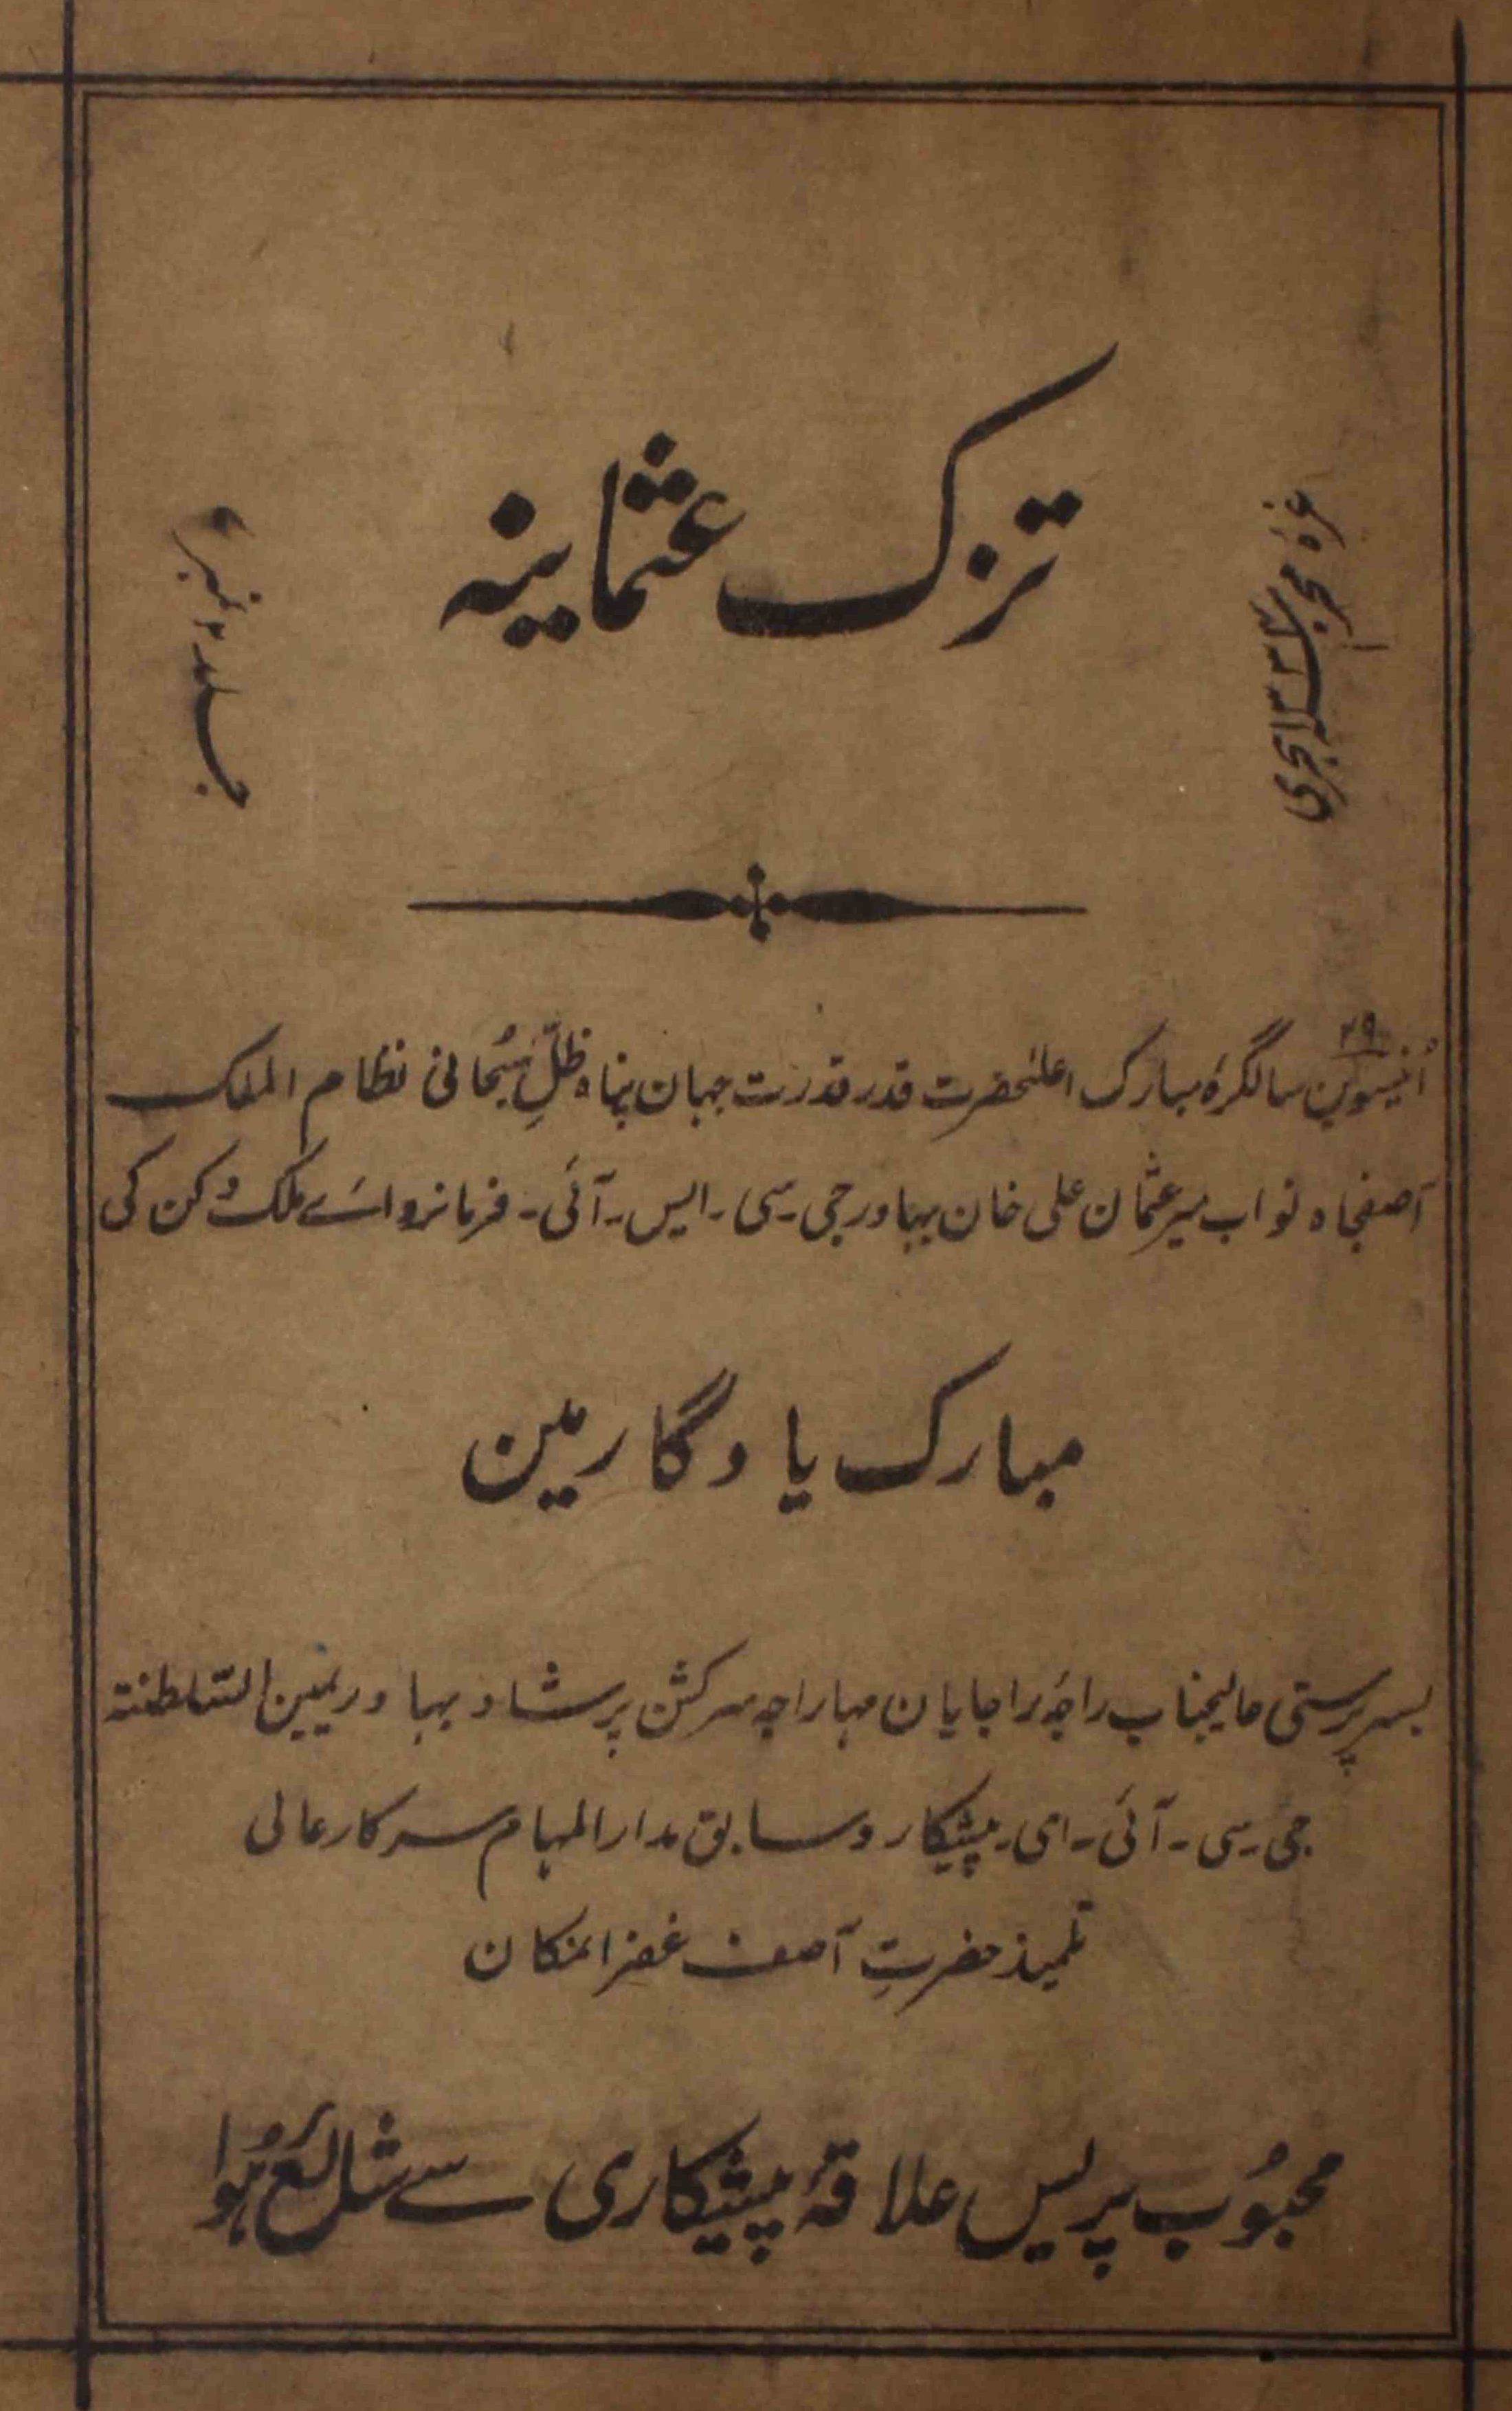 تزک عثمانیہ
غرہ محرم سنہ ۱۳۳۲ ہجری
جلد نمبر
۲۹
اُنتیسوین سالگرۂ مبارک اعلٰحضرت قدر قدرت جہان پناہ ظلِّ سُبحانی نظام الملک
آصفجاہ نواب میر عثمان علی خان بہادر جی۔سی۔ایس۔آئی۔ فرمانروائے ملک دکن کی
مبارک یادگار مین
بسرپرستی عالیجناب راجۂ راجایان مہاراجہ سر کشن پرشاد بہادر یمین السّلطنۃ
جی۔سی۔آئی۔ای۔ پیشکار و سابق مدارالمہام سرکار عالی
تلمیذ حضرتِ آصف غفرانمکان
محبُوب پریس علاقۂ پیشکاری سے شائع ہُوا